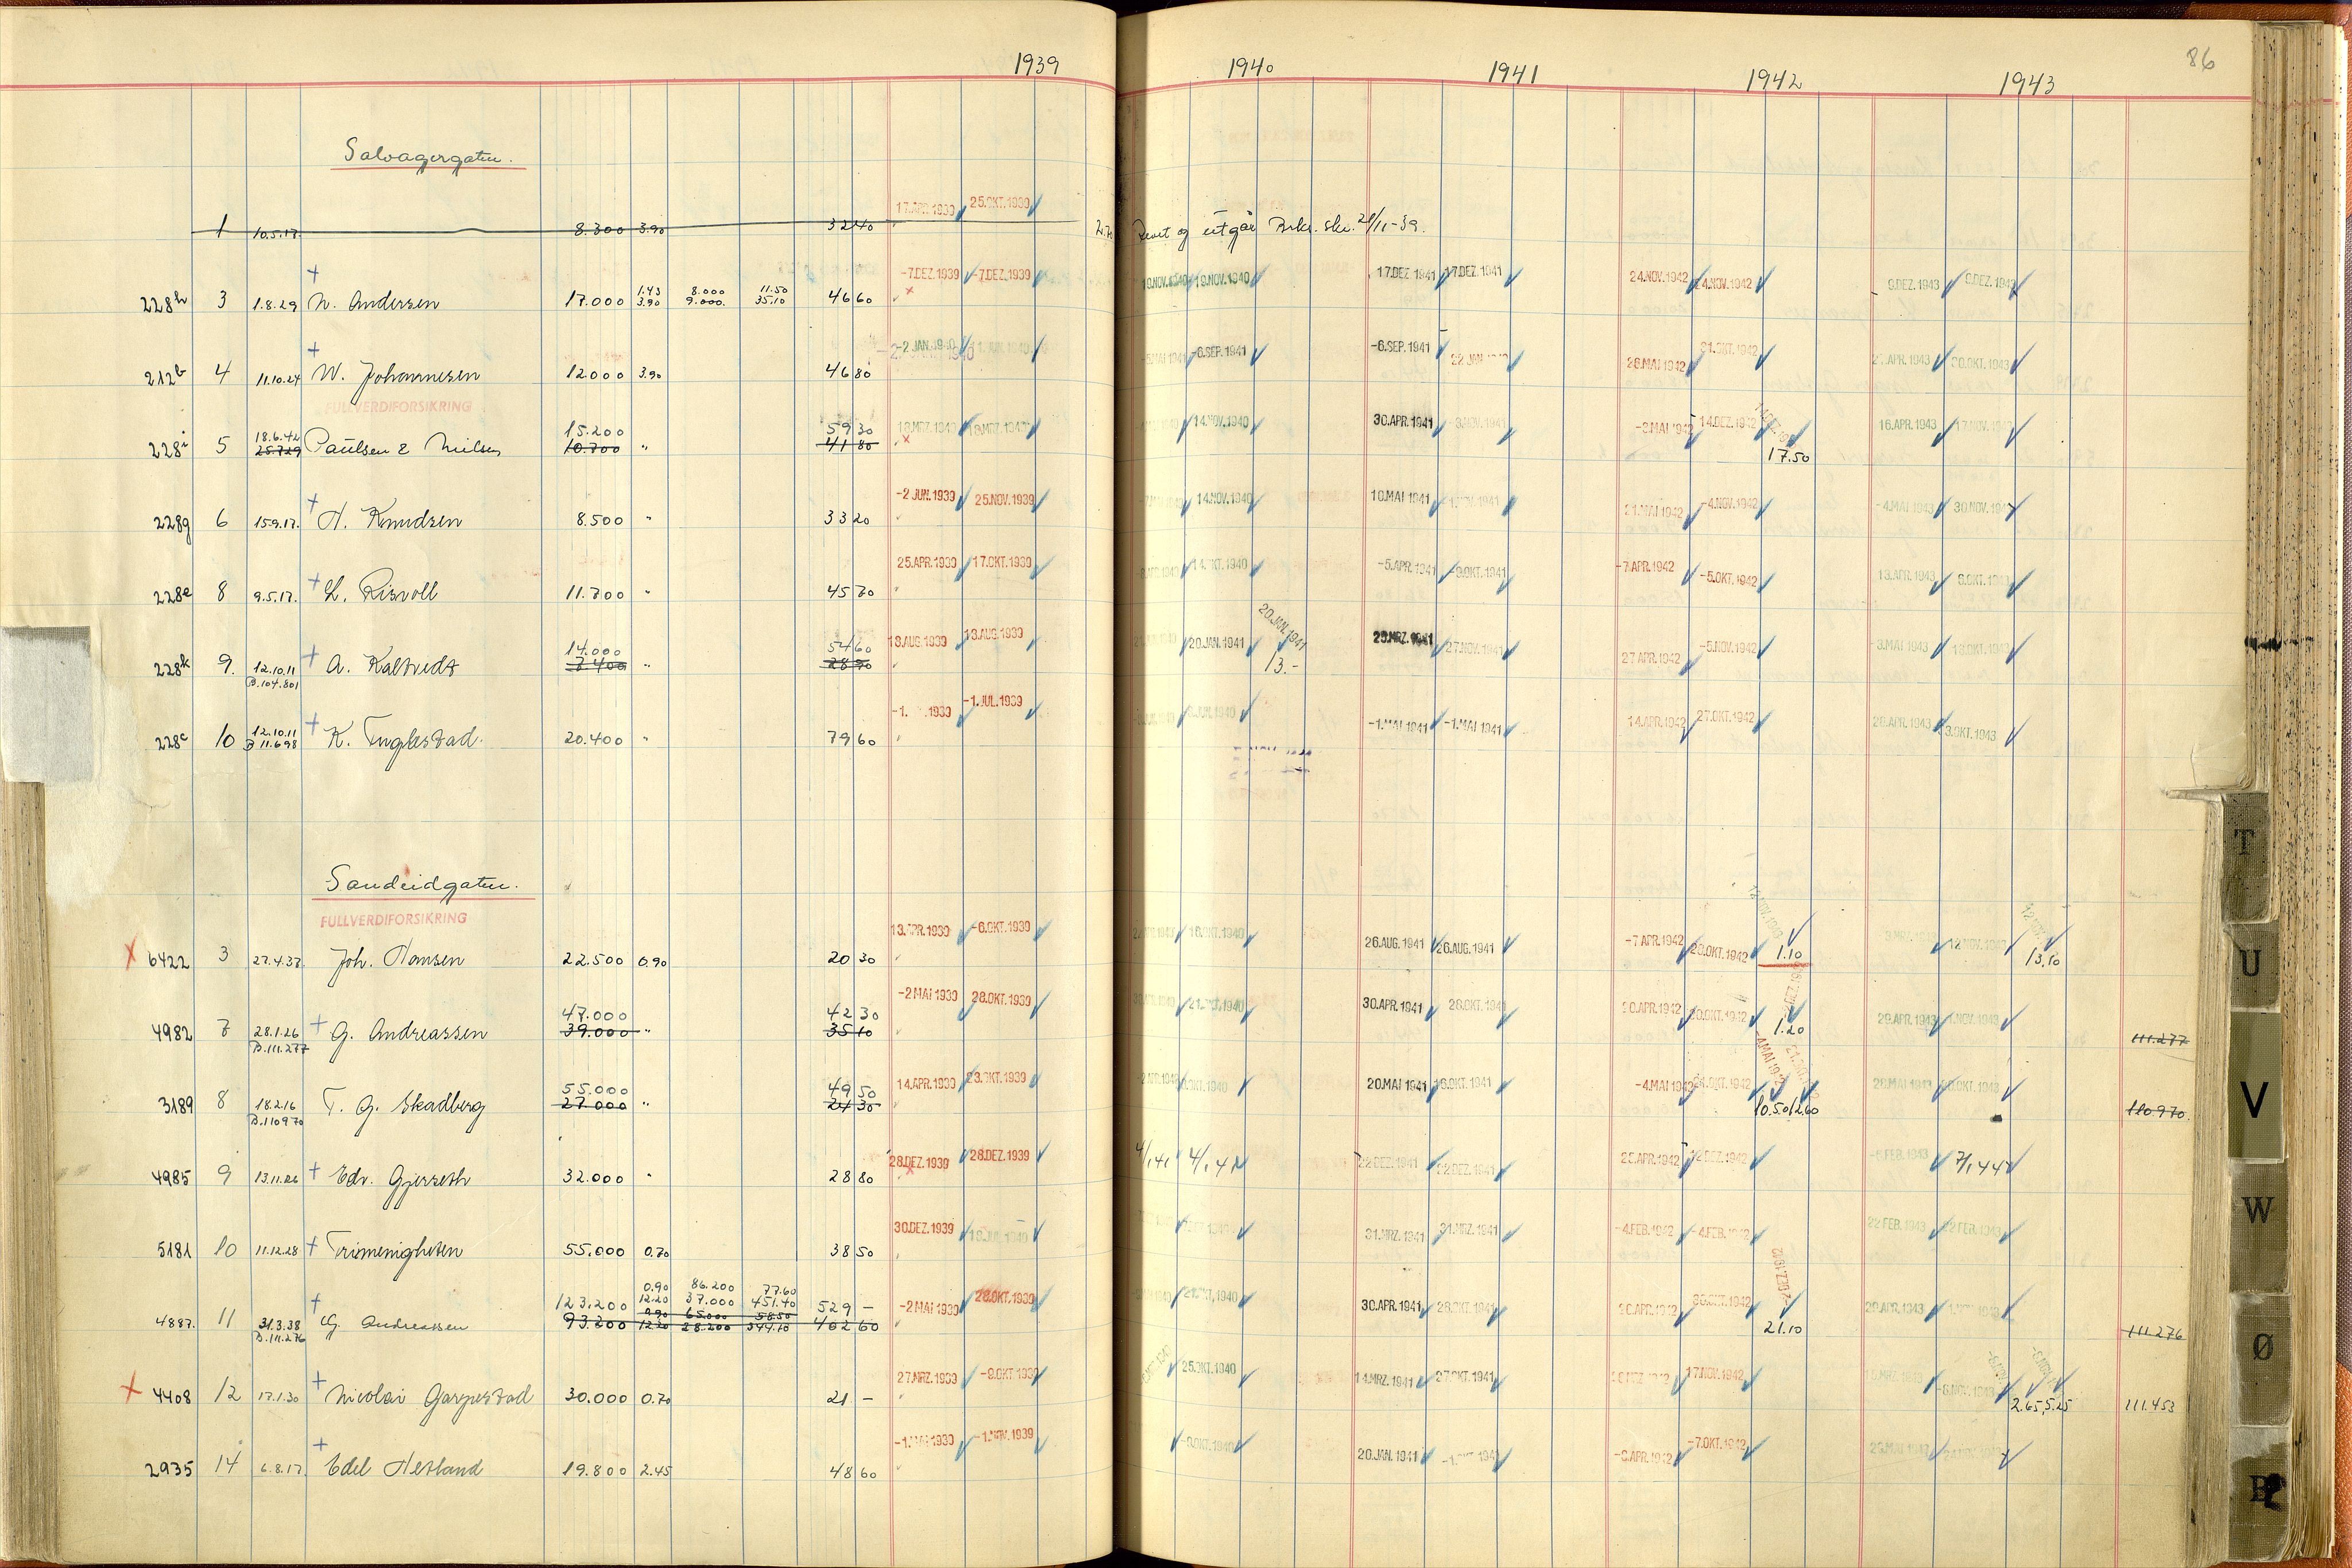 1939 1940 1941 1942 1943 86
Salvagergaten.
17.APR.1939 25.OKT.1939
1 10.5.17. 8.300 3.90 32 40 Revet og utgår Brks. skr. 21/11-39.
-7.DEZ.1939 -7.DEZ.1939 19.NOV.1940 19.NOV.1940 17.DEZ.1941 17.DEZ.1941 24.NOV.1942 24.NOV.1942 9.DEZ.1943 9.DEZ.1943
1.43 8.000 11.50
228h 3 1.8.29 N. Andersen 17.000 3.90 9.000. 35.10 46 60
-2 JAN.1940 -6.SEP.1941 -6.SEP.1941 26.MAI 1942 31.OKT.1942 APR.1943 30.OKT.1943
212b 4 11.10.24 W. Johannesen 12.000 3.90 46 80
FULLVERDIFORSIKRING
18.6.42 15.200 59 30 14.NOV.1940 30.APR.1941 NOV.1941 14.DEZ.1942 16.APR.1943 17.NOV.
228i 5 25.7.29 Paulsen & Nielsen 10.700 " 41 80 17.50
-2 JUN.1939 25.NOV.1939 14.NOV.1940 10.MAI 1941 NOV.1941 21.MAI 1942 -4.NOV.1942 -4.MAI 1943 30.NOV.
228g 6 15.9.17. A. Knudsen 8.500 " 33 20
25.APR.1939 17.OKT.1939 14.OKT.1940 -5.APR.1941 -9.OKT.1941 -7.APR.1942 -5.OKT.1942 13.APR.1943
228e 8 9.5.17. L. Risvoll 11.700 " 45 70
18.AUG.1939 18.AUG.1939 20.JAN.1941 20.JAN.1941 MRZ.1941 27.NOV.1941 27 APR.1942 -5.NOV.1942 -3.MAI 1943
14.000 54 60
228k 9. 12.10.11 A. Kaltvedt 7400 " 28 90 13.-
B.104.801
-1. 1939 -1.JUL.1939 -1.MAI 1941 -1.MAI 1941 14.APR.1942 27.OKT.1942 APR.1943 OKT.1943
228c 10 12.10.11 K. Tuglestad. 20.400 " 79 60
B 11.698
Sandeidgaten.
FULLVERDIFORSIKRING
13.APR.1939 -6.OKT.1939 16.OKT.1940 26.AUG.1941 26.AUG.1941 -7 APR.1942 20.OKT.1942 12 NOV.1943
6422 3 27.4.37. Joh. Hansen 22.500 0.90 20 30 1.10 13.10
-2 MAI 1939 28.OKT.1939 21.OKT.1940 30.APR.1941 28.OKT.1941 30.APR.1942 OKT.1942 29.APR.1943 NOV.1943
47.000 42 30
4982 7 28.1.26 G. Andreassen 39.000 " 35 10 1.20 111.277
B.111.277
14.APR.1939 23.OKT.1939 OKT.1940 20.MAI 1941 16.OKT.1941 -4.MAI 1942 OKT.1942 MAI 1943 OKT.1943
55.000 49 50
3189 8 18.2.16 T. G. Skadberg 27.000 " 24 30 10.50 12.60 110.970
B.110970
28.DEZ.1939 28.DEZ.1939 4/1 41 4/1 41 22 DEZ.1941 22 DEZ.1941 25.APR.1942 DEZ.1942 FEB.1943 7/1 44
4985 9 13.11.26 Edv. Gjerseth 32.000 " 28 80
30.DEZ.1939 31.MRZ.1941 31.MRZ.1941 -4.FEB.1942 -4.FEB.1942 22 FEB.1943 22 FEB.1943
5181 10 11.12.28 Trimenigheten 55.000 0.70 38 50
0.90 86.200 77.60
123.200 12.20 37.000 451.40 529 – -2 MAI 1939 28.OKT.1939 21.OKT.1940 30.APR.1941 28.OKT.1941 30.APR.1942 OKT.1942 29.APR.1943
0.90 65.000 58.50
4887. 11 31.3.38 G. Andreassen 93.200 12.20 28.200 344.10 402 60 21.10 111.276
B.111.276
27.MRZ.1939 -9.OKT.1939 25.OKT.1940 14.MRZ.1941 27.OKT.1941 MRZ 1942 17.NOV.1942 NOV.1943
4408 12 17.1.30 Nicolai Garpestad 30.000 0.70 21 – 2.65 5.25 111.453
-1. 1939 -1.NOV.1939 OKT.1940 20.JAN.1941 APR.1942 -7.OKT.1942
2935 14 6.8.17 Edel Hetland 19.800 2.45 48 60
T
U
V
W
Ø